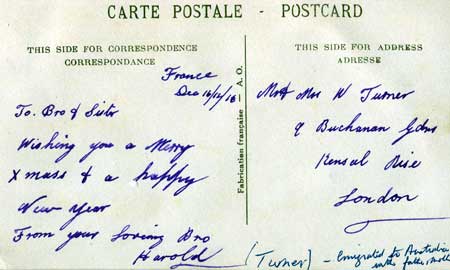 CARTE POSTALE - POSTCARD
THIS SIDE FOR CORRESPONDENCE
CORRESPONDANCE
France
Dec 16/12/18
To. Bro & Sister
Wishing you a Merry
Xmass & a happy
New Year
From your Loving Bro
Harold
Fabrication française — A. O.
THIS SIDE FOR ADDRESS
ADRESSE
Mr & Mrs W Turner
9 Buchanan Gdns
Kensal Rise
London
(Turner) - Emigrated to Australia
with father,